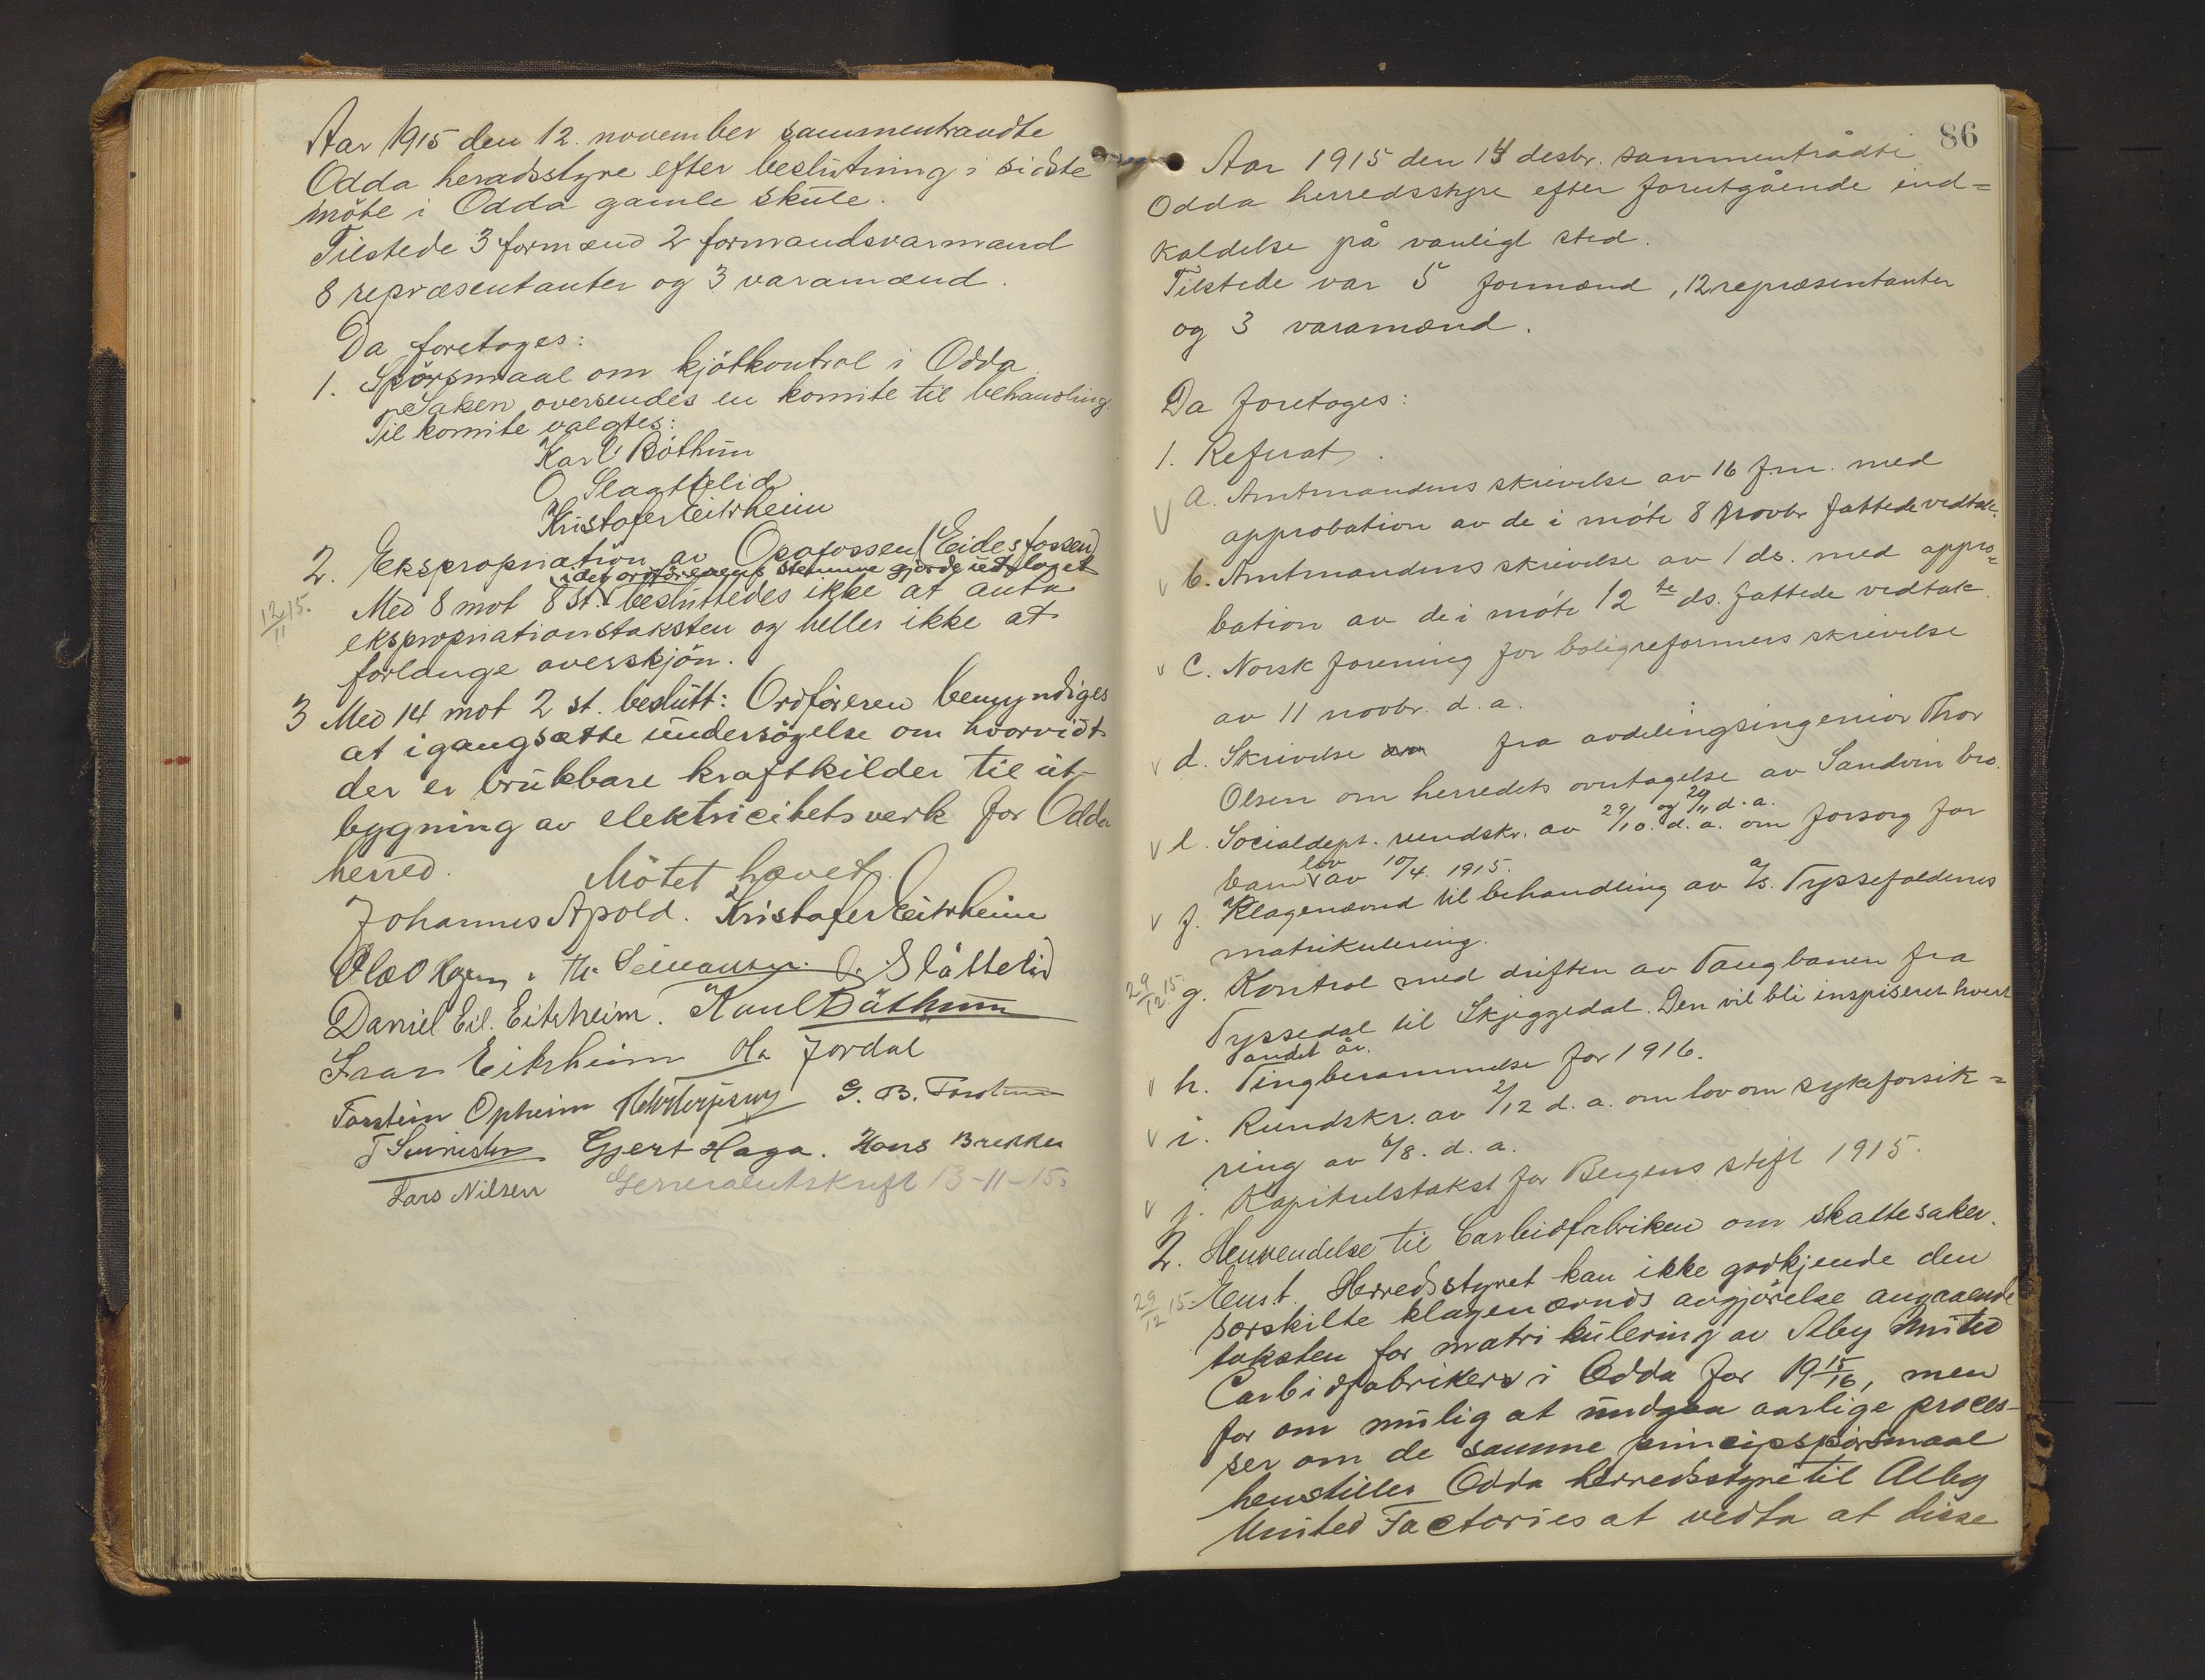 Aar 1915 den 12. november sammentraadte
Odda heradsstyre efter beslutning i sidste
möte i Odda gamle skule.
Tilstede 3 formænd 2 formandsvarmænd
8 repræsentanter og 3 varamænd.
Da foretoges:
1. Spörsmaal om kjötkontrol i Odda.
Saken oversendes en komite til behandling.
Til komite valgtes:
Karl Böthun
O. Slaattelid
Kristofer Eitrheim
2. Ekspropriation av Opofossen (Eidesfossen)
idet ordförerens stemme gjorde udslaget
12/11 15. Med 8 mot 8 st. besluttedes ikke at anta
ekspropriationstaksten og heller ikke at
forlange overskjön.
3 Med 14 mot 2 st. beslutt: Ordföreren bemyndiges
at igangsætte undersögelse om hvorvidt
der er brukbare kraftkilder til ut-
bygning av elektricitetsverk for Odda
herred. Mötet hævet.
Johannes Apold. Kristofer Eitrheim
O. Slåttelid
Daniel Eil. Eitrheim. Karl Böthun
Eitrheim Ola Jordal
Torstein Opheim G. B.
Gjert Haga. Hans Brekke
Lars Nilsen Generalutskrift 13-11-15.
86
Aar 1915 den 14 desbr. sammentrådte
Odda herredsstyre efter forutgående ind=
kaldelse på vanligt sted.
Tilstede var 5 formænd, 12 repræsentanter
og 3 varamænd.
Da foretoges:
1. Referat.
a. Amtmandens skrivelse av 16 f.m. med
approbation av de i møte 8 novbr fattede vedtak.
b. Amtmandens skrivelse av 1 ds. med appro=
bation av de i møte 12 te ds. fattede vedtak.
c. Norsk forening for boligreformers skrivelse
av 11 novbr. d. a.
d. Skrivelse fra avdelingsingeniør Thor
Olsen om herredets overtagelse av Sandvin bro.
e. Socialdept. rundskr. av 29/10. d. a. og 29/11 d. a. om forsorg for
barn lov av 10/4. 1915.
f. Klagenævnd til behandling av A/S. Tyssefaldenes
matrikulering.
29/12 15. g. Kontrol med driften av Taugbanen fra
Tyssedal til Skjeggedal. Den vil bli inspiseret hvert
andet år.
h. Tingberammelse for 1916.
i. Rundskr. av 2/12 d. a. om lov om sykeforsik=
ring av 6/8. d. a.
j. Kapitulstakst for Bergens stift 1915.
2. Henvendelse til Carbidfabriken om skattesaker.
29/12 15. Enst. Herredsstyret kan ikke godkjende den
særskilte klagenævnds avgjörelse angaaende
taksten for matrikulering av Alby United
Carbidfabriker i Odda for 19 15/16, men
for om mulig at undgaa aarlige proces-
ser om de samme principspörsmaal
henstiller Odda herredsstyre til Alby
United Factories at vedta at disse